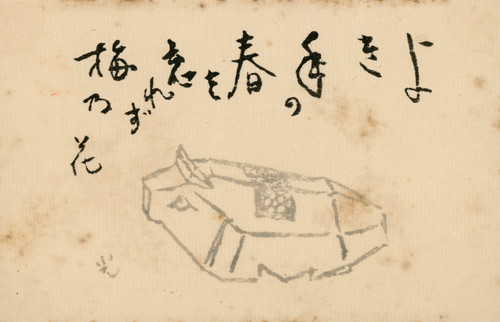 よき
年の
春を
忘れず
梅乃
花